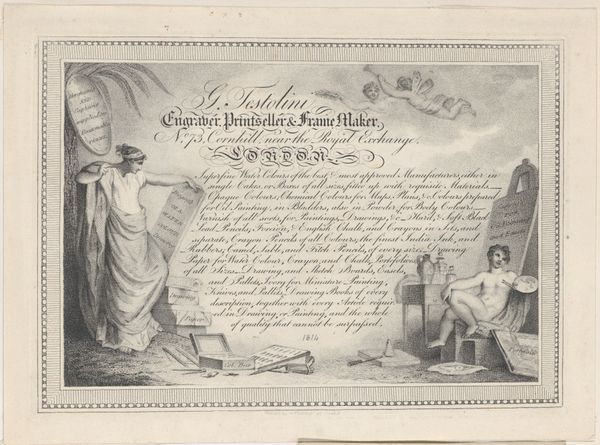 G. Testolini
Engraver, Printseller & Frame Maker,
No. 73, Cornhill, near the Royal Exchange,
LONDON
Superfine Water Colours of the best & most approved Manufacturers, either in
single Cakes, or Boxes of all sizes, fitted up with requisite Materials.
Opaque Colours, Chemical Colours for Maps, Plans, & Colours prepared
for Oil Painting, in Bladders, also in Powder, for Body Colours.
Varnish of all sorts, for Paintings, Drawings, &c. Hard, & Soft Black
Lead Pencils, Foreign, & English Chalk, and Crayons in Sets, and
separate, Crayon Pencils of all Colours, the finest India Ink, and
Rubbers, Camel, Sable, and Fitch Pencils, of every size, Drawing
Paper for Water Colour, Crayon, and Chalk, Portfolios
of all Sizes, Drawing, and Sketch Boards, Easels,
and Pallets, Ivory for Miniature Painting,
Knives, and Pallets, Drawing Books of every
description, together with every Article requir
ed in Drawing, or Painting, and the whole
of quality that cannot be surpassed.
1814
Drawing
Paper